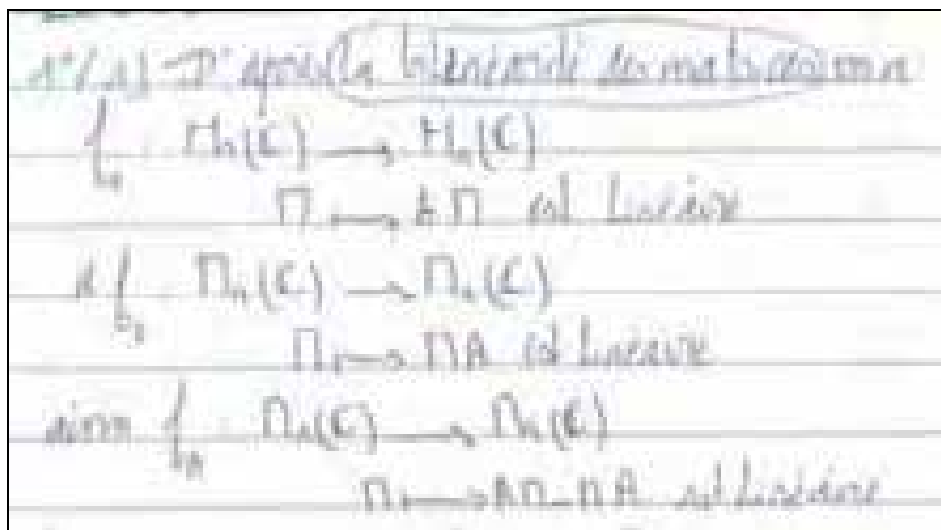 1°/ a) D'après la bilinéarité des matrices on a
f : M_n(C) → M_n(C)
M ↦ AM est linéaire
et f : M_n(C) → M_n(C)
M ↦ MA est linéaire
ainsi f_A : M_n(C) → M_n(C)
M ↦ AM - MA est linéaire